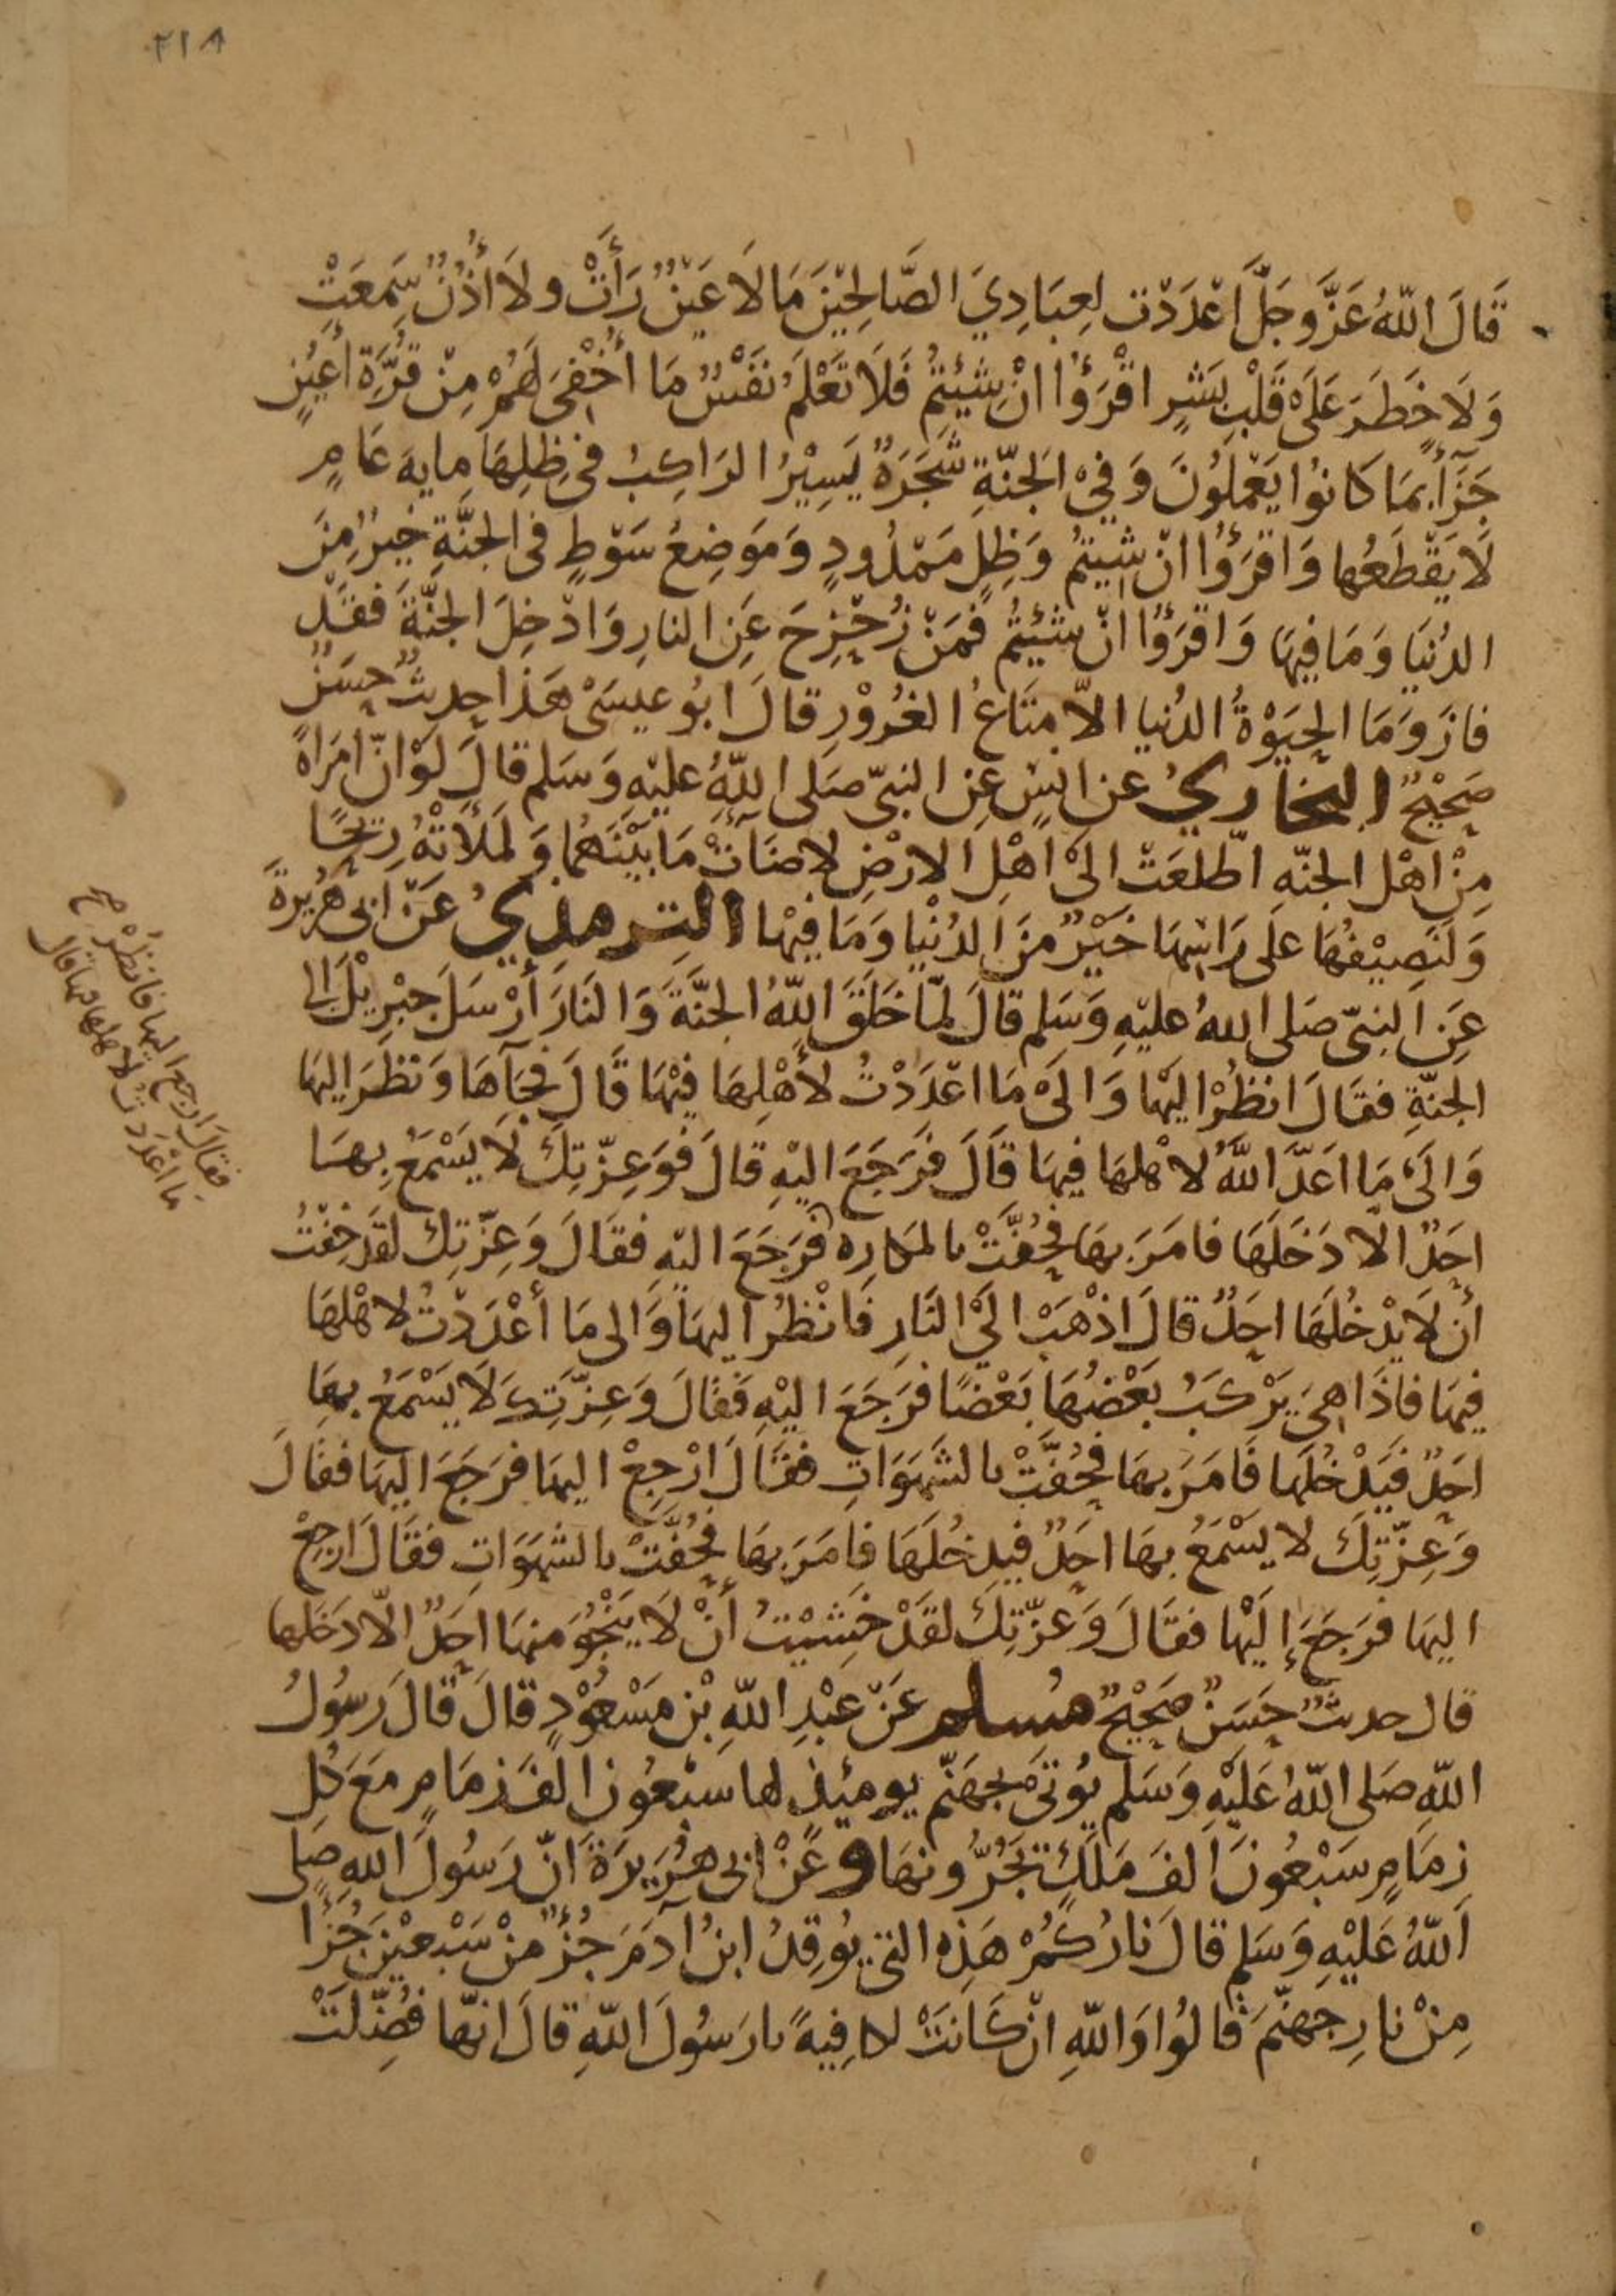 ٢١٨
قَالَ اللّهُ عَزَّ وَجَلَّ اَعْدَدْت لِعِبَادِيَ الصَّالِحِيْنَ مَا لَا عَيْنٌ رَأَتْ ولَا أُذُنٌ سَمِعَتْ
وَلَا خَطَرَ عَلَى قَلْبِ بَشَرٍ اقْرَؤُا انْ شِئْتُمْ فَلَا تَعْلَمُ نَفْسٌ مَا أُخْفِىَ لَهُمْ مِنْ قُرَّةِ أَعْيُنٍ
جَزَآءً بِمَا كَانُوا يَعْمَلُونَ وَفِيْ الجَنّةِ شَجَرَةٌ يَسِيْرُ الرَاكِبُ فىِ ظِلِهَا مِايه عَامٍ
لَا يَقْطَعُها وَاقرَؤُا انْ شِيْتُمْ وَظِلٍ مَمْدُودٍ وَمَوَضِعُ سَوْطٍ فى الجَنَّةِ خَيرٌ مِنَ
الدُنيَا وَمَا فِيهَا وَاقرَؤُا انْ شئِتُمْ فَمَنْ زُحْزِحَ عَنِ النارِ وَادْخِلَ الجَنَّةَ فَقَدْ
فازَ وَمَا الحَيَوْةُ الدُنيا الاّ مَتَاعُ الغُرُوْرِ قالَ ابُو عيسَىْ هَذا حديثٌ حسَنٌ
صَحِيْحٌ البخاريُ عن انسٍ عنِ النبىّ صَلى اللّهُ عليْهِ وَسَلم قالَ لَوْ انّ امرَاةً
مِنْ اهْل الجنّهِ اطّلعَتْ الىَ اهْلِ الارْضِ لاضَآتْ مَا بَيْنَهُمَا وَلَمَلأَتْهُ رِيْحًا
وَلَنَصِيْفُهَا عَلى رَاسِهَا خَيْرٌ مِنَ الدُنْيا وَمَا فِيْهَا الترمذيُ عَنْ ابى هُرَيرةَ
عَنِ النبىّ صَلى اللهُ عليْهِ وَسَلم قالَ لمّا خَلَقَ اللّهُ الجنَّةَ وَالنَارَ أَرْسَلَ جبْرِيْلَ الى
الجَنّةِ فقَالَ انظُرْ اليْهَا وَالىَ مَا اعْدَدْتُ لأهْلِهَا فِيْهَا قَالَ فجَآهَا وَنظرَ اليهَا
وَالىَ مَا اعَدَّ اللّهُ لاهْلهَا فِيهَا قَالَ فَرَجَعَ اليْهِ قالَ فوَعِزّتِكَ لَا يَسْمَعُ بِهَا
احَدٌ الّا دَخَلَهَا فامَرَ بهَا فحُفَّتْ بالمكارِه فَرَجَعَ اليْهِ فقَالَ وَعِزّتِكَ لقَدْ خِفْتُ
أنْ لَا يَدْخُلَهَا احَدٌ قالَ اذْهَبْ الىَ النَارِ فَانْظُرْ اليهَا وَالى مَا أعْدَدْتُ لاهْلهَا
فِيهَا فاذَا هِىَ يَرْكَبُ بَعْضُهَا بَعْضًا فرَجَعَ اليْهِ فَقَالَ وَعِزّتِكَ لَا يَسْمَعُ بِهَا
احَدٌ فيَدْخُلَها فَامَرَ بهَا فحُفَّتْ بالشَهَوَاتِ فقَالَ ارْجِعْ اليهَا فرَجَعَ اليهَا فقَالَ
وَعِزّتِكَ لا يسْمَعُ بهَا احَدٌ فيدخُلَهَا فامَرَ بهَا فحُفَّتْ بالشهَوَاتِ فقَالَ ارجِعْ
اليهَا فرَجَعَ إِلَيْها فقَالَ وَعزّتِكَ لقَدْ خَشيْتُ أنْ لَا يَنْجُوَ منهَا احَدٌ الّا دَخَلَها
قال حديثٌ حَسَنٌ صَحِيْحٌ مسلم عَنْ عَبْدِ اللّهِ بْنِ مَسْعُوْدٍ قالَ قالَ رَسُولُ
اللّهِ صَلى اللّهُ عَلَيْهِ وَسَلم يُوتىَ بجهَنّم يومئِذٍ لها سَبْعُونَ الفَ زمَامٍ مَعَ كُلِ
زِمَامٍ سَبْعُونَ الفَ مَلَكٍ يَجُرُّونهَا وعَنْ ابى هُرَيرَةَ انّ رَسُولَ اللهِ صَلى
اللّهُ عَليْهِ وَسَلم قالَ نارُكُمْ هَذِهِ التى يُوقِدُ ابنُ آدَمَ جُزْءٌ مِنْ سَبْعِيْنَ جُزْءًا
مِنْ نارِ جَهنّمَ قالُوا وَاللّهِ انْ كَانَتْ لكافِيةً يارَسُولَ اللّهِ قالَ انهّا فُضِّلَتْ
فقالَ ارجع اليها فانظُرْ صح
ما اعْدَدْتُ لاهلها فيها قال